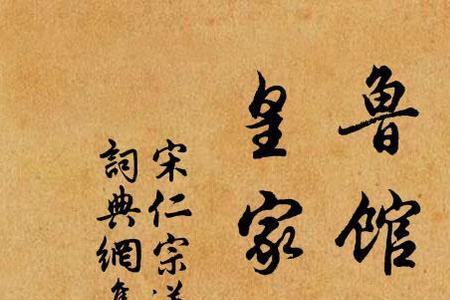 鲁馆
皇家
宋仁宗
詞典網